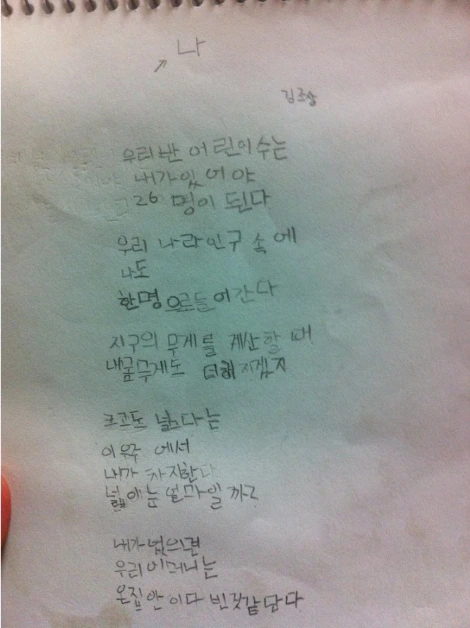 나
김조상
우리 반 어린이 수는
내가 있어야
26 명이 된다
우리 나라 인구 속에
나도
한명 으로 들어간다
지구의 무게를 계산할 때
내몸무게도 더해지겠지
크고도 넓다는
이 우주 에서
내가 차지한다
넓이는 얼마일까?
내가 없으면
우리 어머니는
온집안이다 빈것같답다